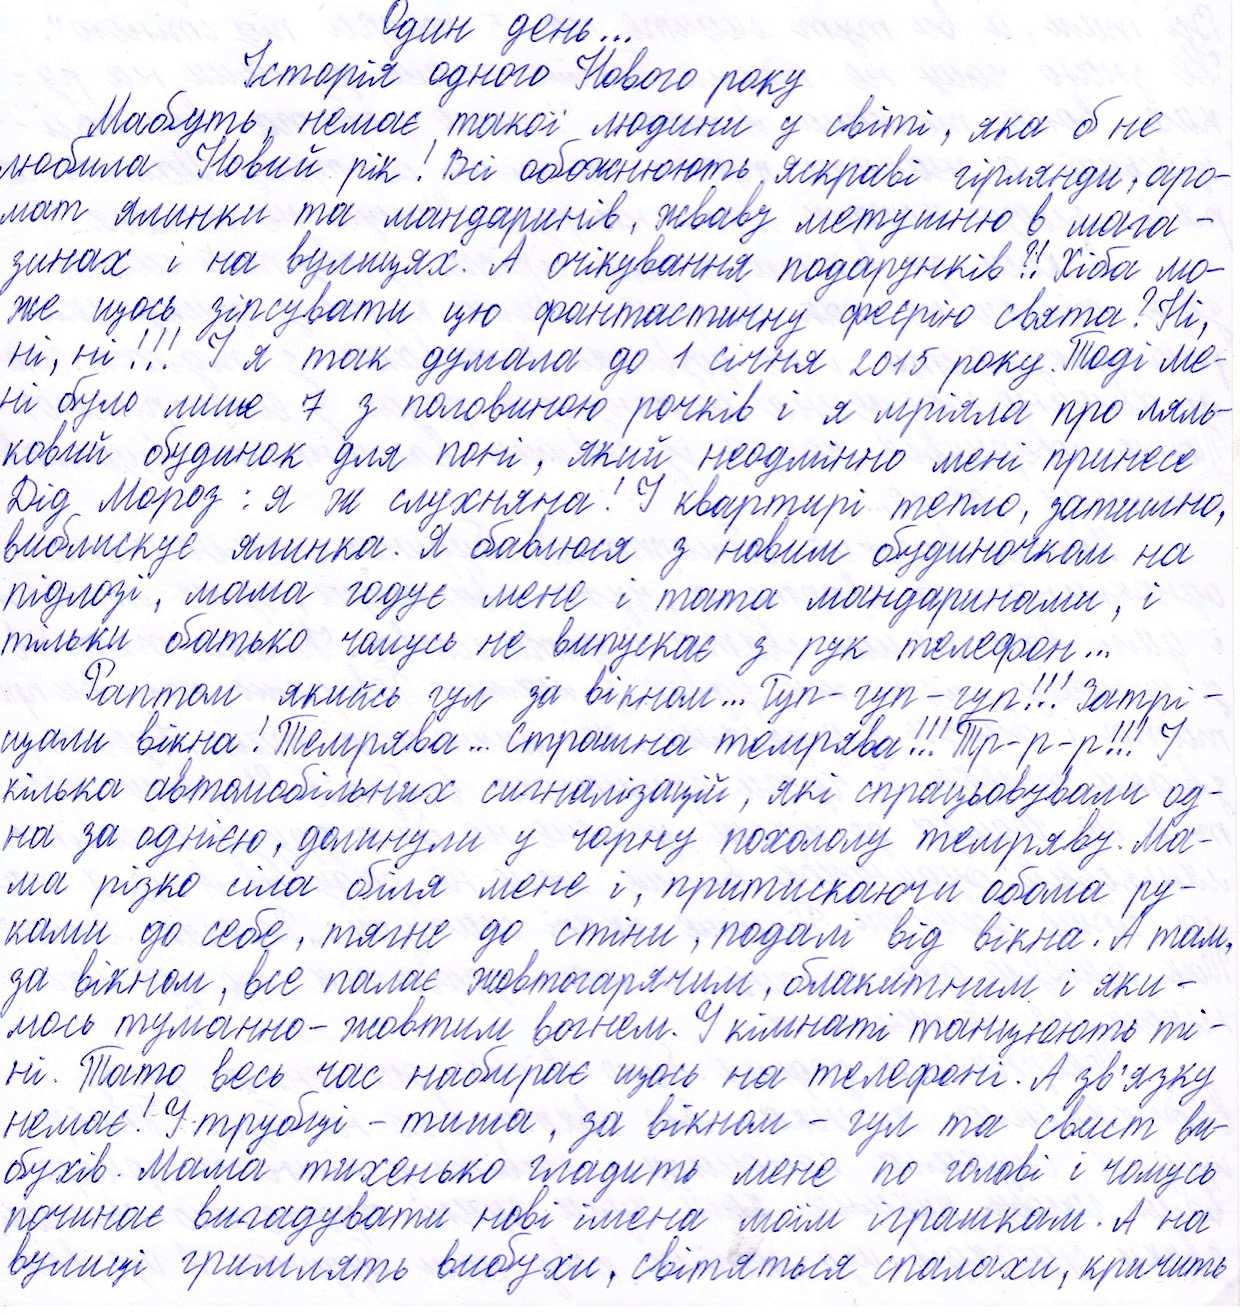 Один день...
Історія одного Нового року
Мабуть, немає такої людини у світі, яка б не
любила Новий рік! Всі обожнюють яскраві гірлянди, аро-
мат ялинки та мандаринів, жваву метушню в мага-
зинах і на вулицях. А очікування подарунків?! Хіба мо-
же щось зіпсувати цю фантастичну феєрію свята? Ні,
ні, ні!!! І я так думала до 1 січня 2015 року. Тоді ме-
ні було лише 7 з половиною рочків і я мріяла про ляль-
ковий будинок для поні, який неодмінно мені принесе
Дід Мороз: я ж слухняна! У квартирі тепло, затишно,
виблискує ялинка. Я бавлюся з новим будиночком на
підлозі, мама годує мене і тата мандаринами, і
тільки батько чомусь не випускає з рук телефон...
Раптом якийсь гул за вікном... Гуп-гуп-гуп!!! Затрі-
щали вікна! Темрява... Страшна темрява!!! Тр-р-р!!! І
кілька автомобільних сигналізацій, які спрацьовували од-
на за однією, долинули у чорну похололу темряву. Ма-
ма різко сіла біля мене і, притискаючи обома ру-
ками до себе, тягне до стіни, подалі від вікна. А там,
за вікном, все палає жовтогарячим, блакитним і яки-
мось туманно-жовтим вогнем. У кімнаті танцюють ті-
ні. Тато весь час набирає щось на телефоні. А зв'язку
немає! У трубці - тиша, за вікном - гул та свист ви-
бухів. Мама тихенько гладить мене по голові і чомусь
починає вигадувати нові імена моїм іграшкам. А на
вулиці гримлять вибухи, світяться спалахи, кричить